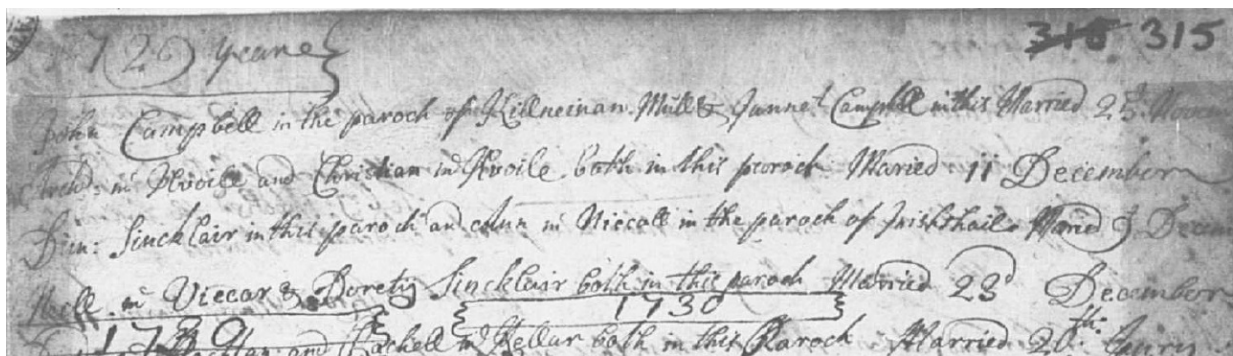 315 315
1729 yeare
John Campbell in the paroch of Killneinan Mull & Junnet Campbell in this Married 25t Novem
Arch'd: mc Avoile and Christian mc Avoile both in this parock Maried 11 December
Dun: Sincklair in this paroch and Ann mc Niccoll in the paroch of Inishhail Maried December
Neill mc Viccar & Dorety Sincklair both in this paroch Married 23d December
1730
1730
and Rachell mc Kellar both in this Parock Married 20th: